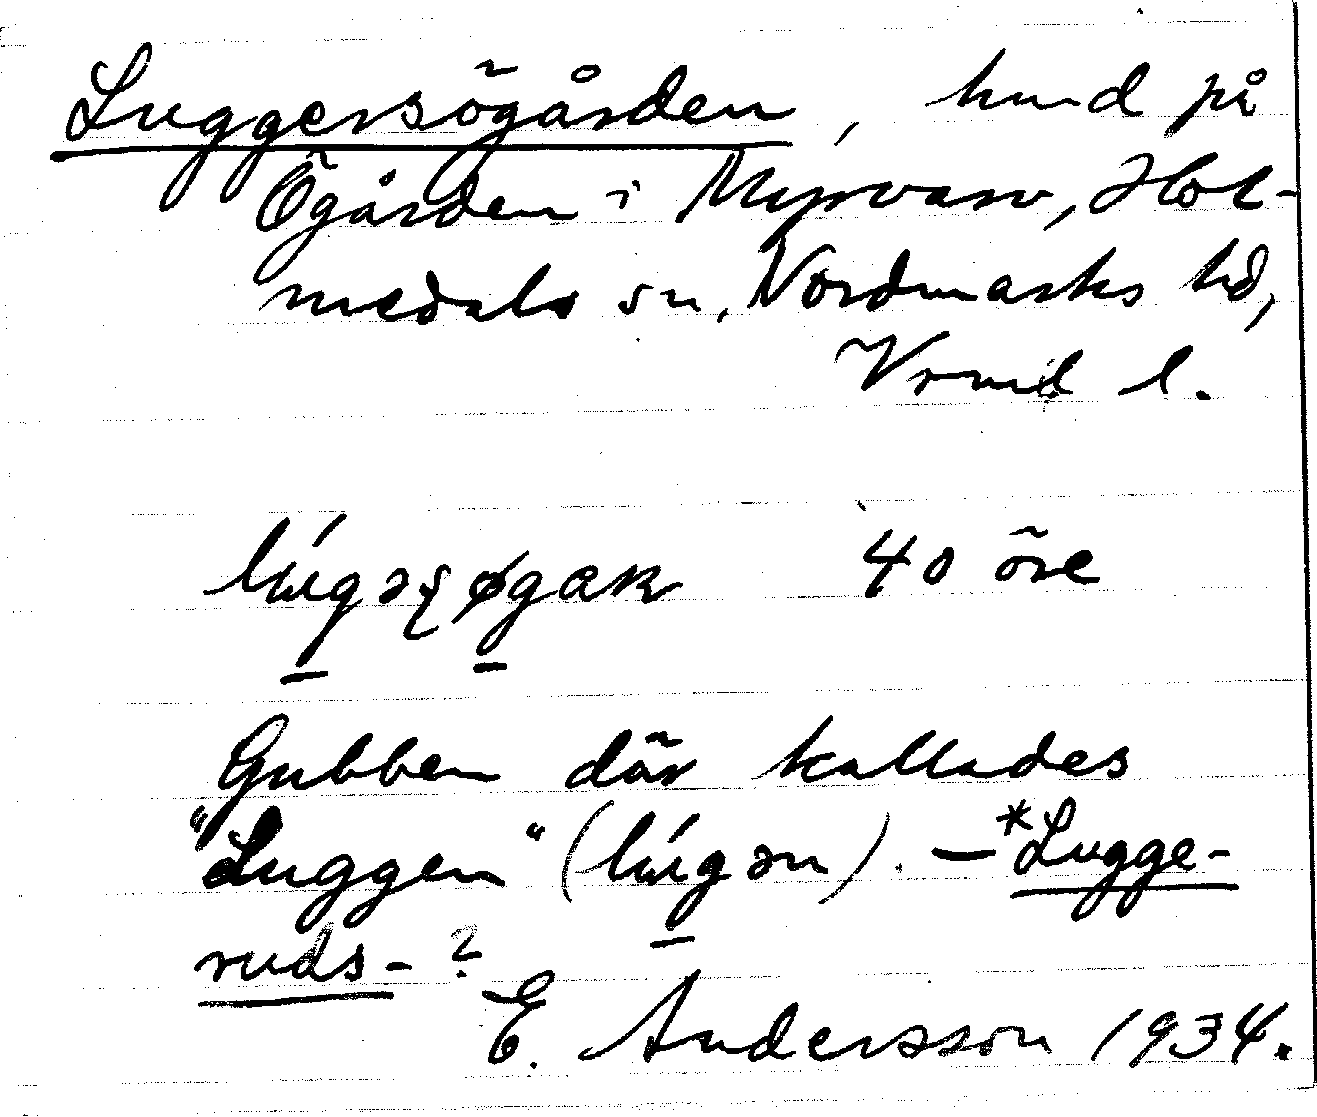 Luggersögården, hmd på
Ögården i Myrvarv, Hol-
medals sn, Nordmarks hd,
Vrml l.
lúgəʂøgaɳ 40 öre
Gubben där kallades
"Luggen" (lúgən). – *Lugge-
ruds- ?
E. Andersson 1934.